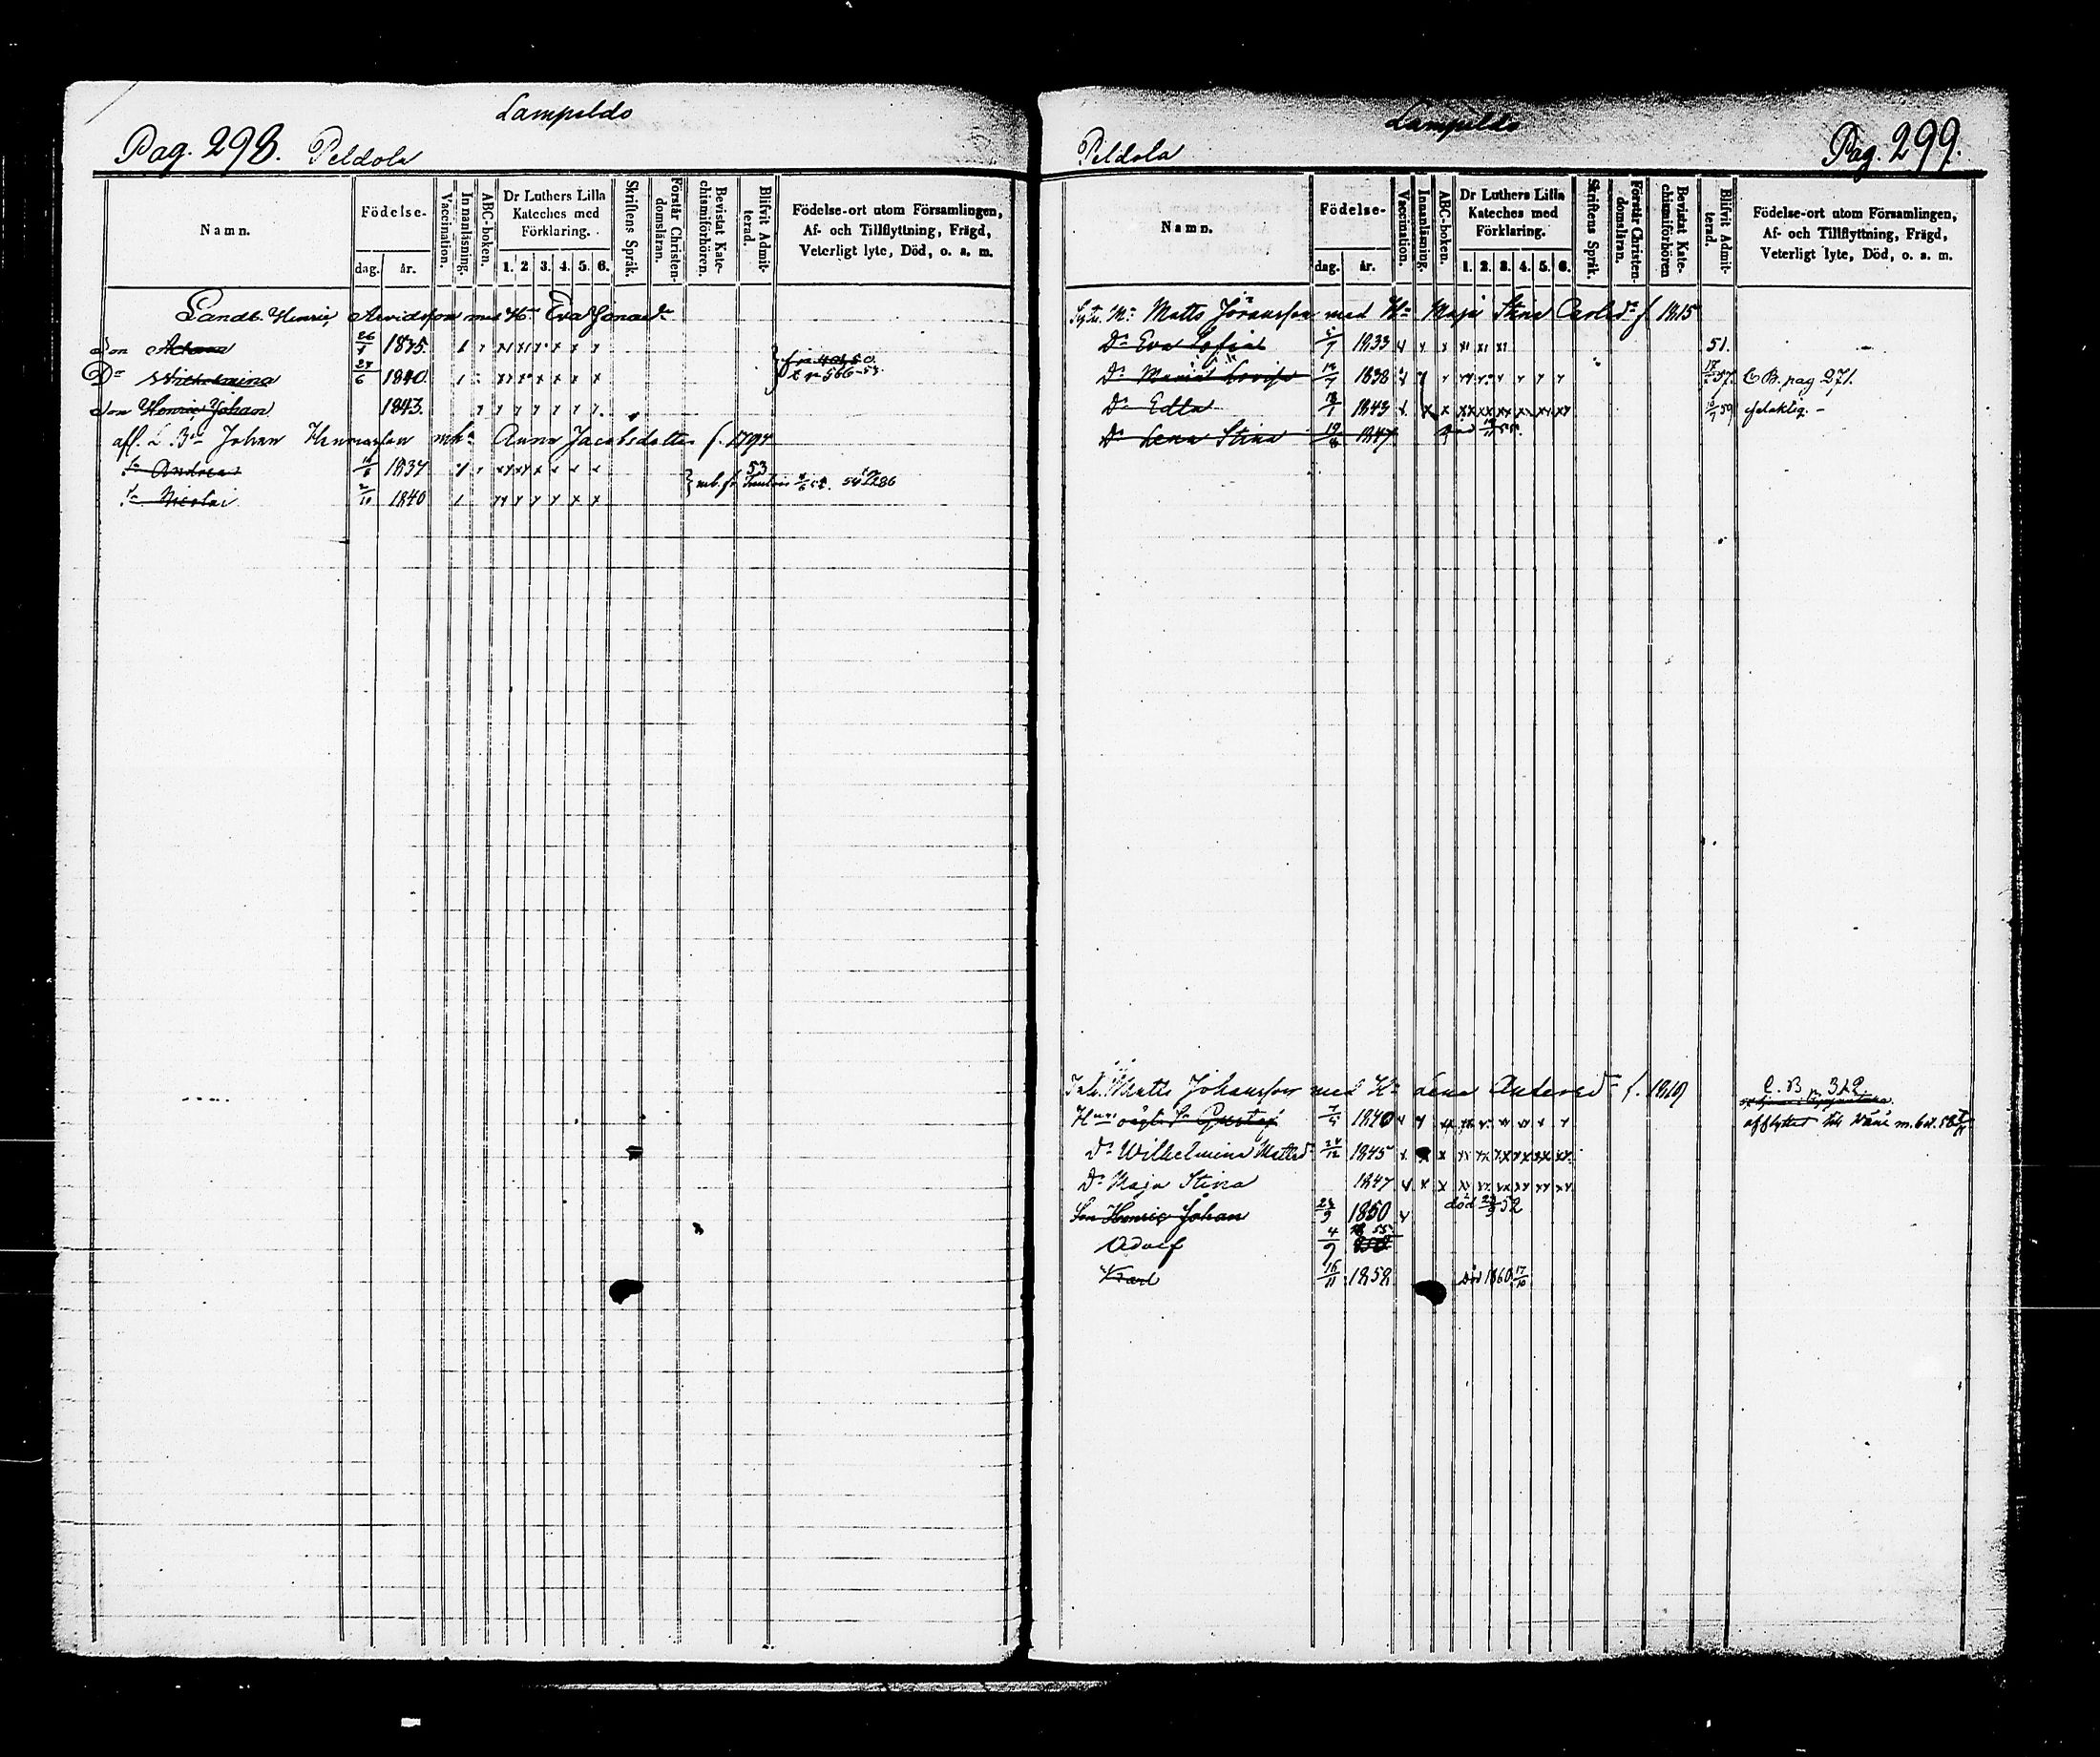 Lampeldo
Pag. 298. Peldola
Namn.
Födelse-
dag. år.
Vaccination.
Innanläsning.
ABC-boken.
Dr Luthers Lilla
Kateches med
Förklaring.
1. 2. 3. 4. 5. 6.
Skriftens Språk.
Förstår Christen-
domsläran.
Bevistat Kate-
chismiförhören.
Blifvit Admit-
terad.
Födelse-ort utom Församlingen,
Af- och Tillflyttning, Frägd,
Veterligt lyte, Död, o. s. m.
Landb. Henric Arvidsson med Hu Eva Jönasdr
Son 26/1 1835.
Dr Wilhelmina 24/6 1840.
Son Henric Johan 1843.
afl. Johan Henricsson Anna Jacobsdotter f. 1794
Andrea 1837 53
Nicolai 2/11 1840
Lampeldo
Peldola Pag. 299.
Namn.
Födelse-
dag. år.
Vaccination.
Innanläsning.
ABC-boken.
Dr Luthers Lilla
Kateches med
Förklaring.
1. 2. 3. 4. 5. 6.
Skriftens Språk.
Förstår Christen-
domsläran.
Bevistat Kate-
chismiförhören
Blifvit Admit-
terad.
Födelse-ort utom Församlingen,
Af- och Tillflyttning, Frägd,
Veterligt lyte, Död, o. s. m.
Matts Jöransson med Hu Maja Stina Carlsdr f 1815
Dr Eva Sofia 1833 51.
Dr Maria Lovisa 1838 57. C B. pag 271.
Dr Edla 18/1 1843 59
Dr Lena Stina 19/8 1847 död 55.
Matts Johansson med Hu Lena Andersdr f. 1819 C. B. p. 312.
Gustaf 7/5 1840 afflyttad
Dr Wilhelmina Mattsdr 24/12 1845
Dr Maja Stina 1847
Son Henric Johan 1850 död 52
Adolf 4/9 55
Karl 15/11 1858 död 1860 17/10